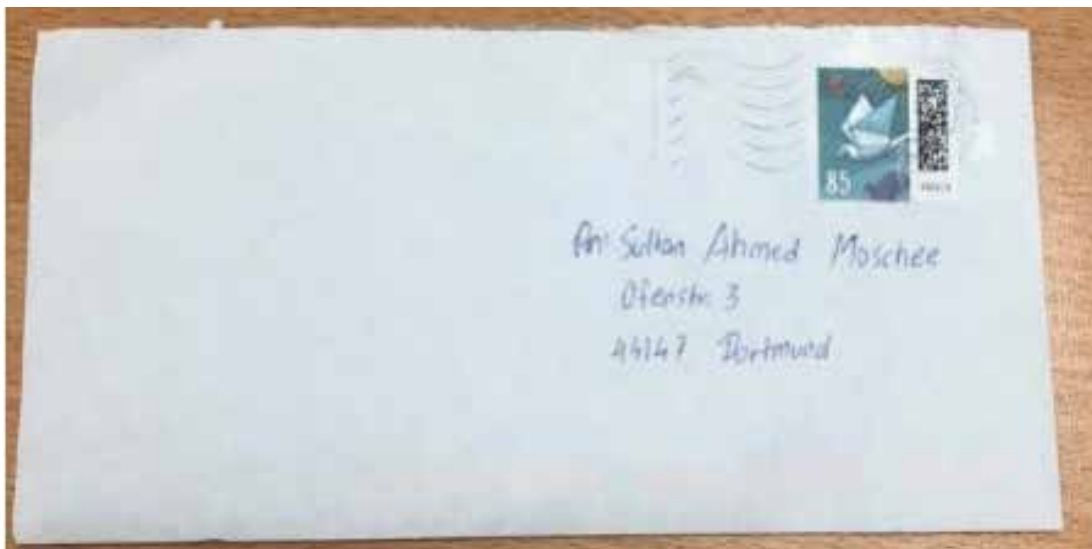 85
An: Sultan Ahmed Moschee
Ofenstr. 3
44147 Dortmund